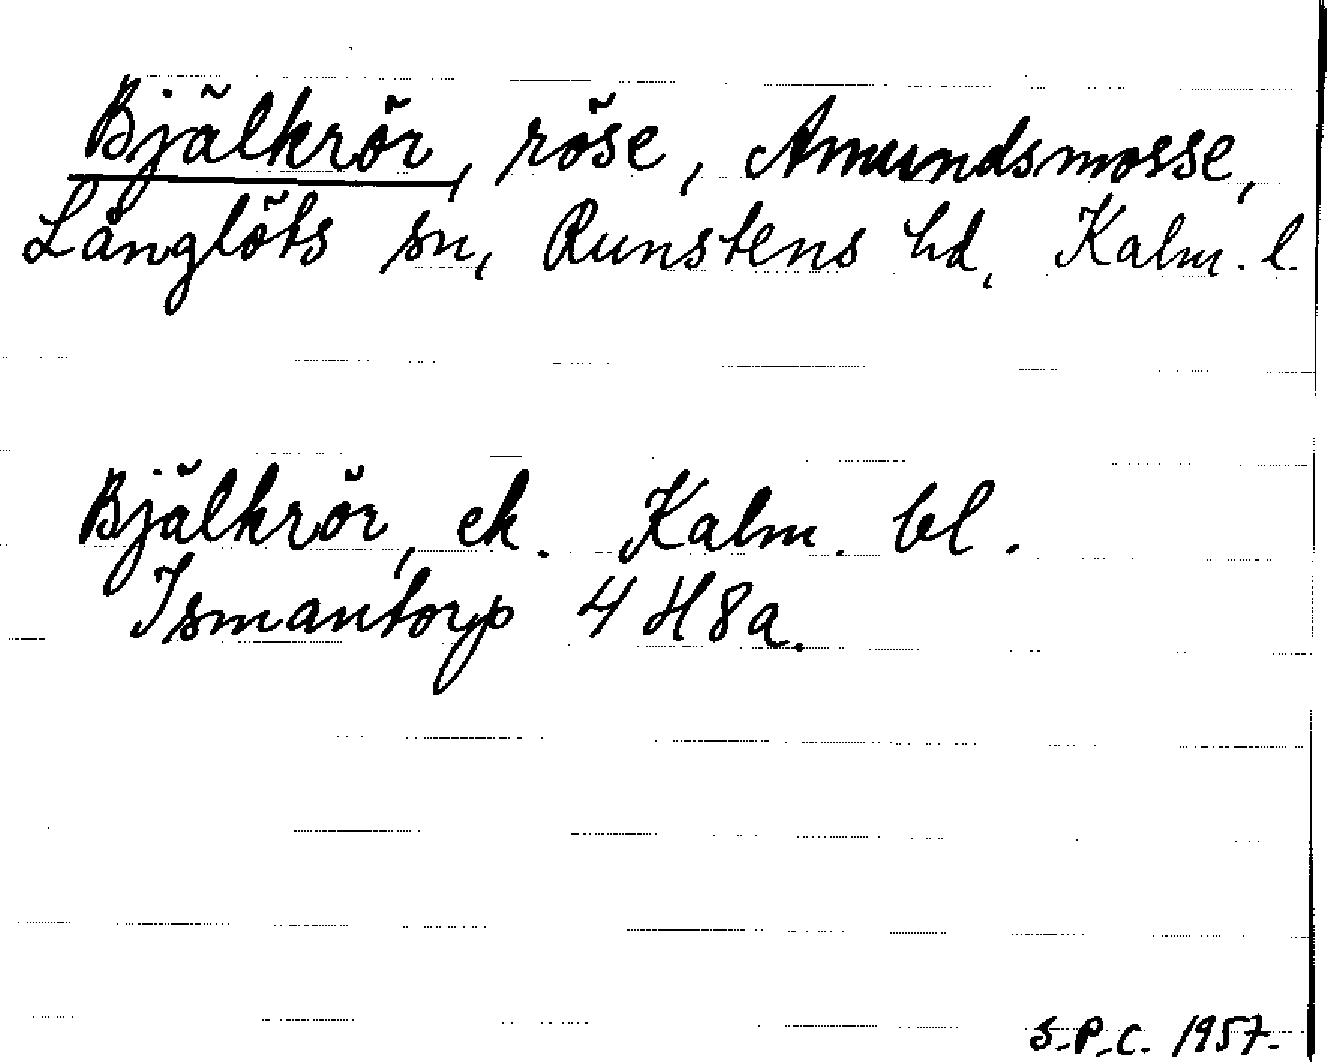 Bjälkrör, röse, Amundsmosse,
Långlöts sn, Runstens hd, Kalm. l.
Bjälkrör, ek. Kalm. bl.
Ismantorp 4 H 8a.
S.P.C. 1957.